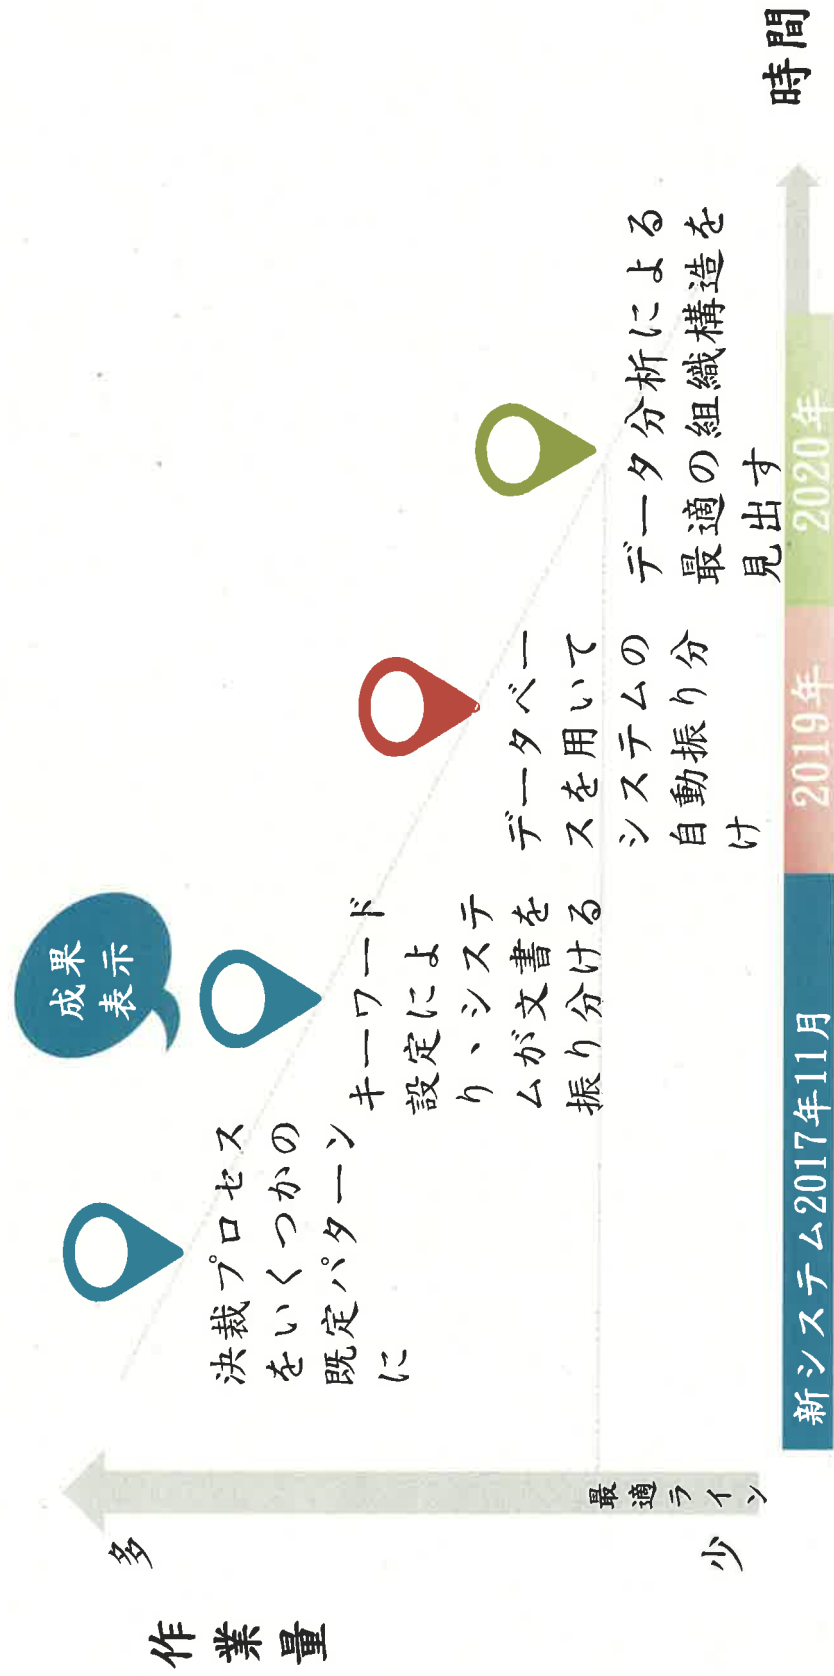 作
業
量
多
少
最適ライン
成果
表示
決裁プロセス
をいくつかの
既定パターン
に
キーワード
設定によ
り、システ
ムが文書を
振り分ける
データベー
スを用いて
システムの
自動振り分
け
データ分析による
最適の組織構造を
見出す
新システム2017年11月
2019年
2020年
時間